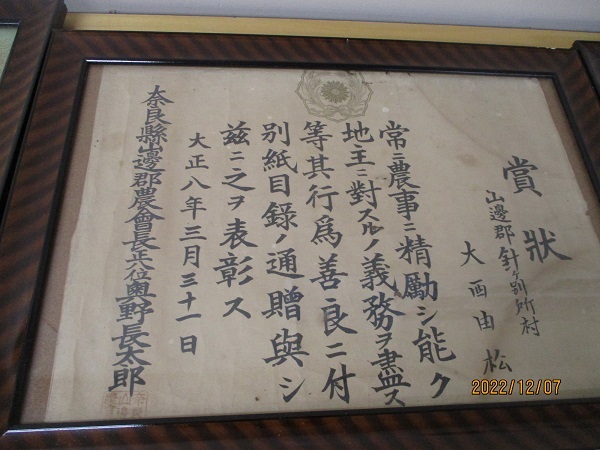 賞狀
山邊郡針ヶ別所村
大西由松
常ニ農事ニ精勵シ能ク
地主ニ對スルノ義務ヲ盡ス
等其行爲善良ニ付
別紙目錄ノ通贈與シ
玆ニ之ヲ表彰ス
大正八年三月三十一日
奈良縣山邊郡農會長正六位奥野長太郎
2022/12/07